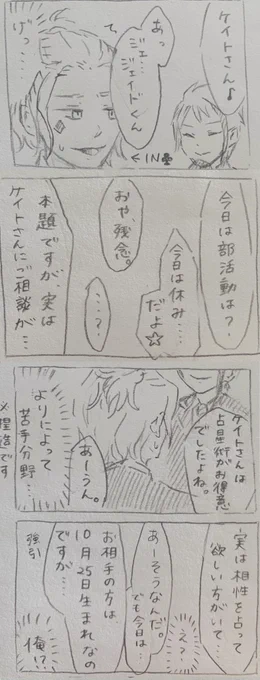 ケイトさん♪
あっ
ジェ…
ジェイドくん
て、
げっ…
←IN♣
今日は部活動は?
今日は休み…
だよ☆
おや、残念。
…?
本題ですが、実は
ケイトさんにご相談が…
ケイトさんは
占星術がお得意
でしたよね。
あーうん。
よりによって
苦手分野…
×捏造です
実は相性を占って
欲しい方がいて…
…え?
あーそうなんだ。
でも今日は…
お相手の方は
10月25日生まれなの
ですが…
強引
俺!?